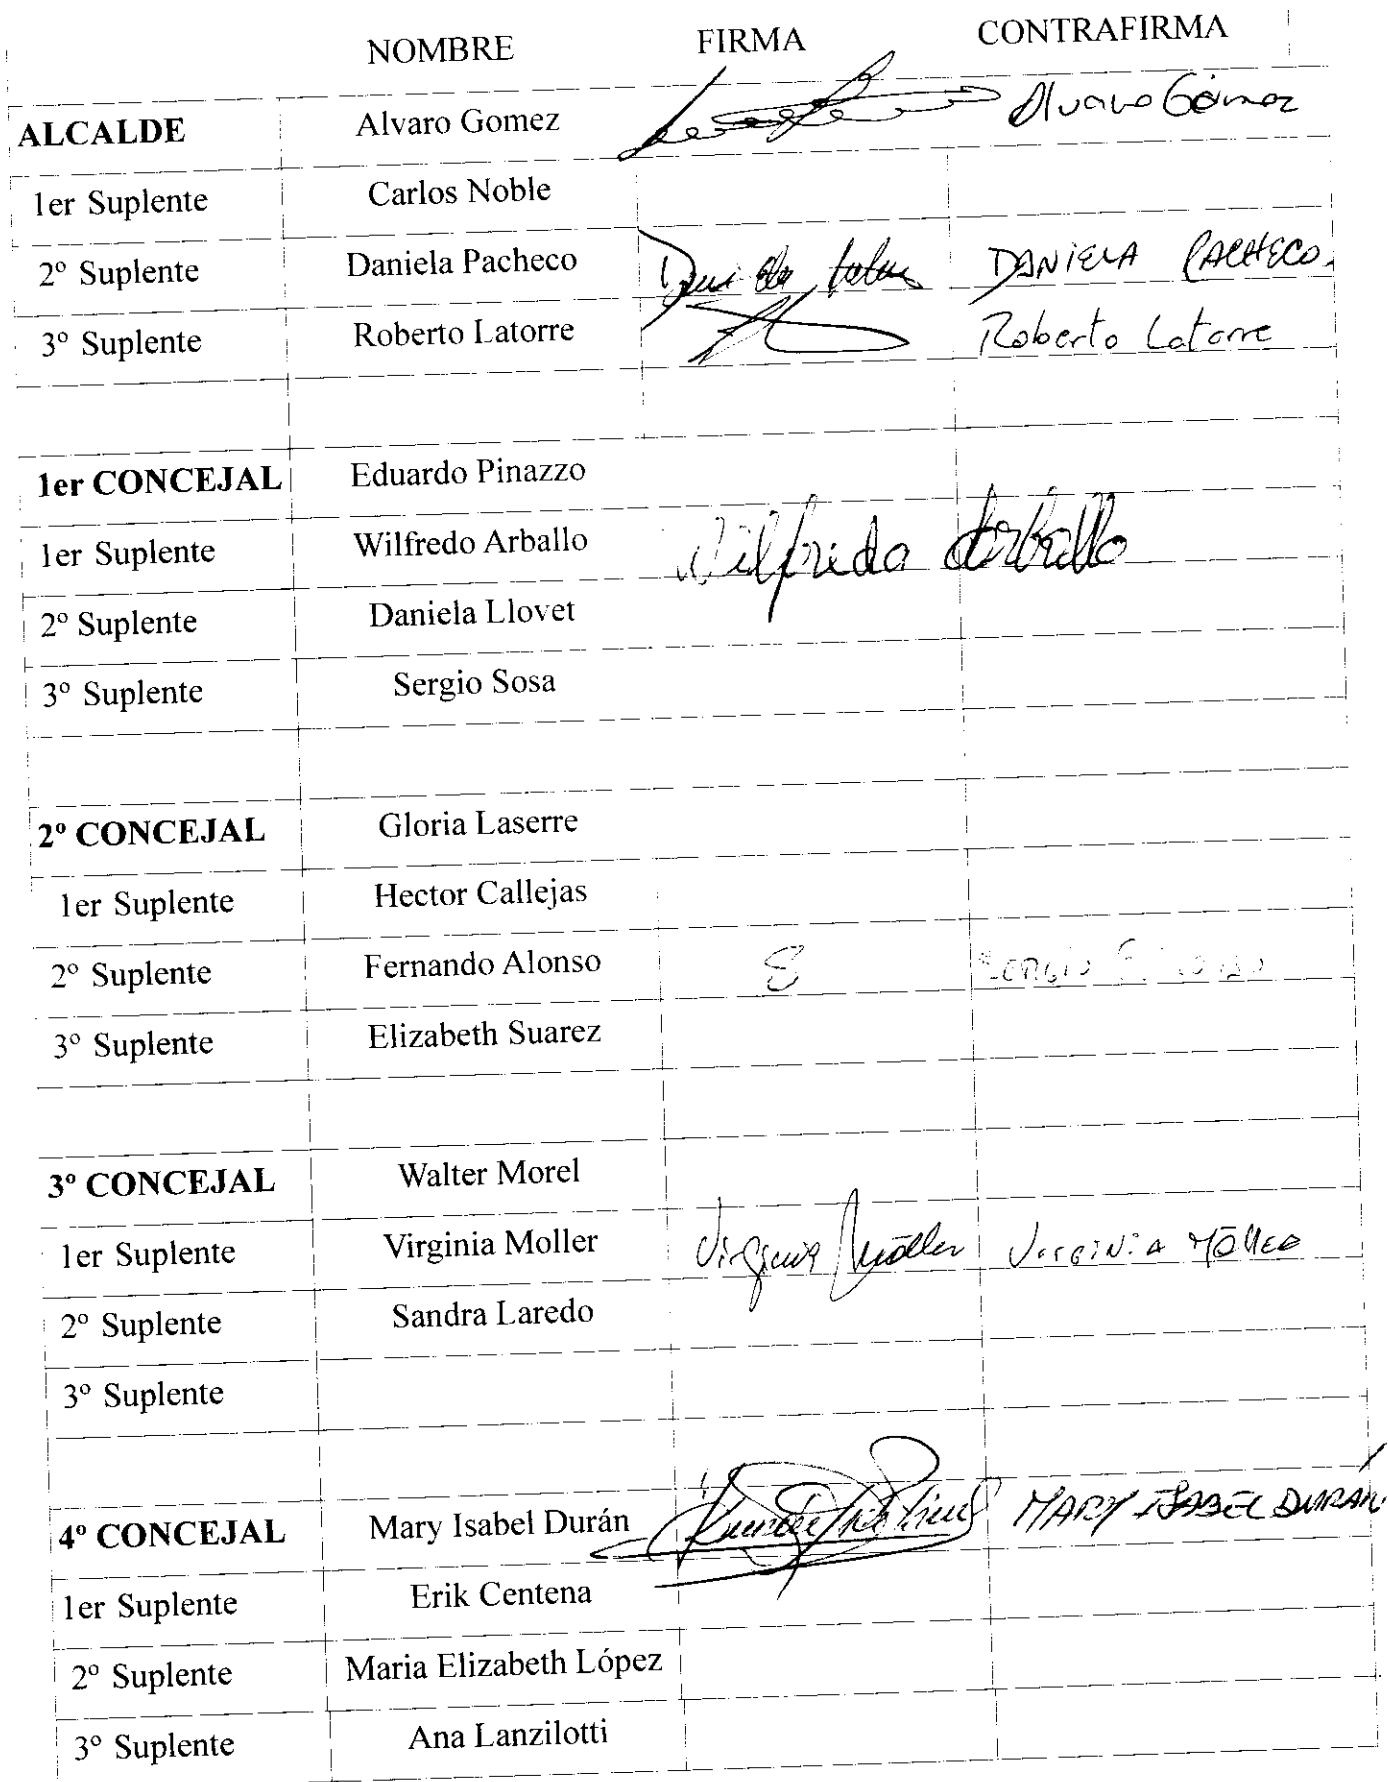 NOMBRE FIRMA CONTRAFIRMA
ALCALDE Alvaro Gomez Alvaro Gómez
1er Suplente Carlos Noble
2º Suplente Daniela Pacheco DANIELA PACHECO.
3º Suplente Roberto Latorre Roberto Latorre
1er CONCEJAL Eduardo Pinazzo
1er Suplente Wilfredo Arballo Wilfredo Arballo
2º Suplente Daniela Llovet
3º Suplente Sergio Sosa
2º CONCEJAL Gloria Laserre
1er Suplente Hector Callejas
2º Suplente Fernando Alonso SERGIO F.
3º Suplente Elizabeth Suarez
3º CONCEJAL Walter Morel
1er Suplente Virginia Moller Virginia Möller VIRGINIA MÖLLER
2º Suplente Sandra Laredo
3º Suplente
4º CONCEJAL Mary Isabel Durán MARY ISABEL DURÁN
1er Suplente Erik Centena
2º Suplente Maria Elizabeth López
3º Suplente Ana Lanzilotti